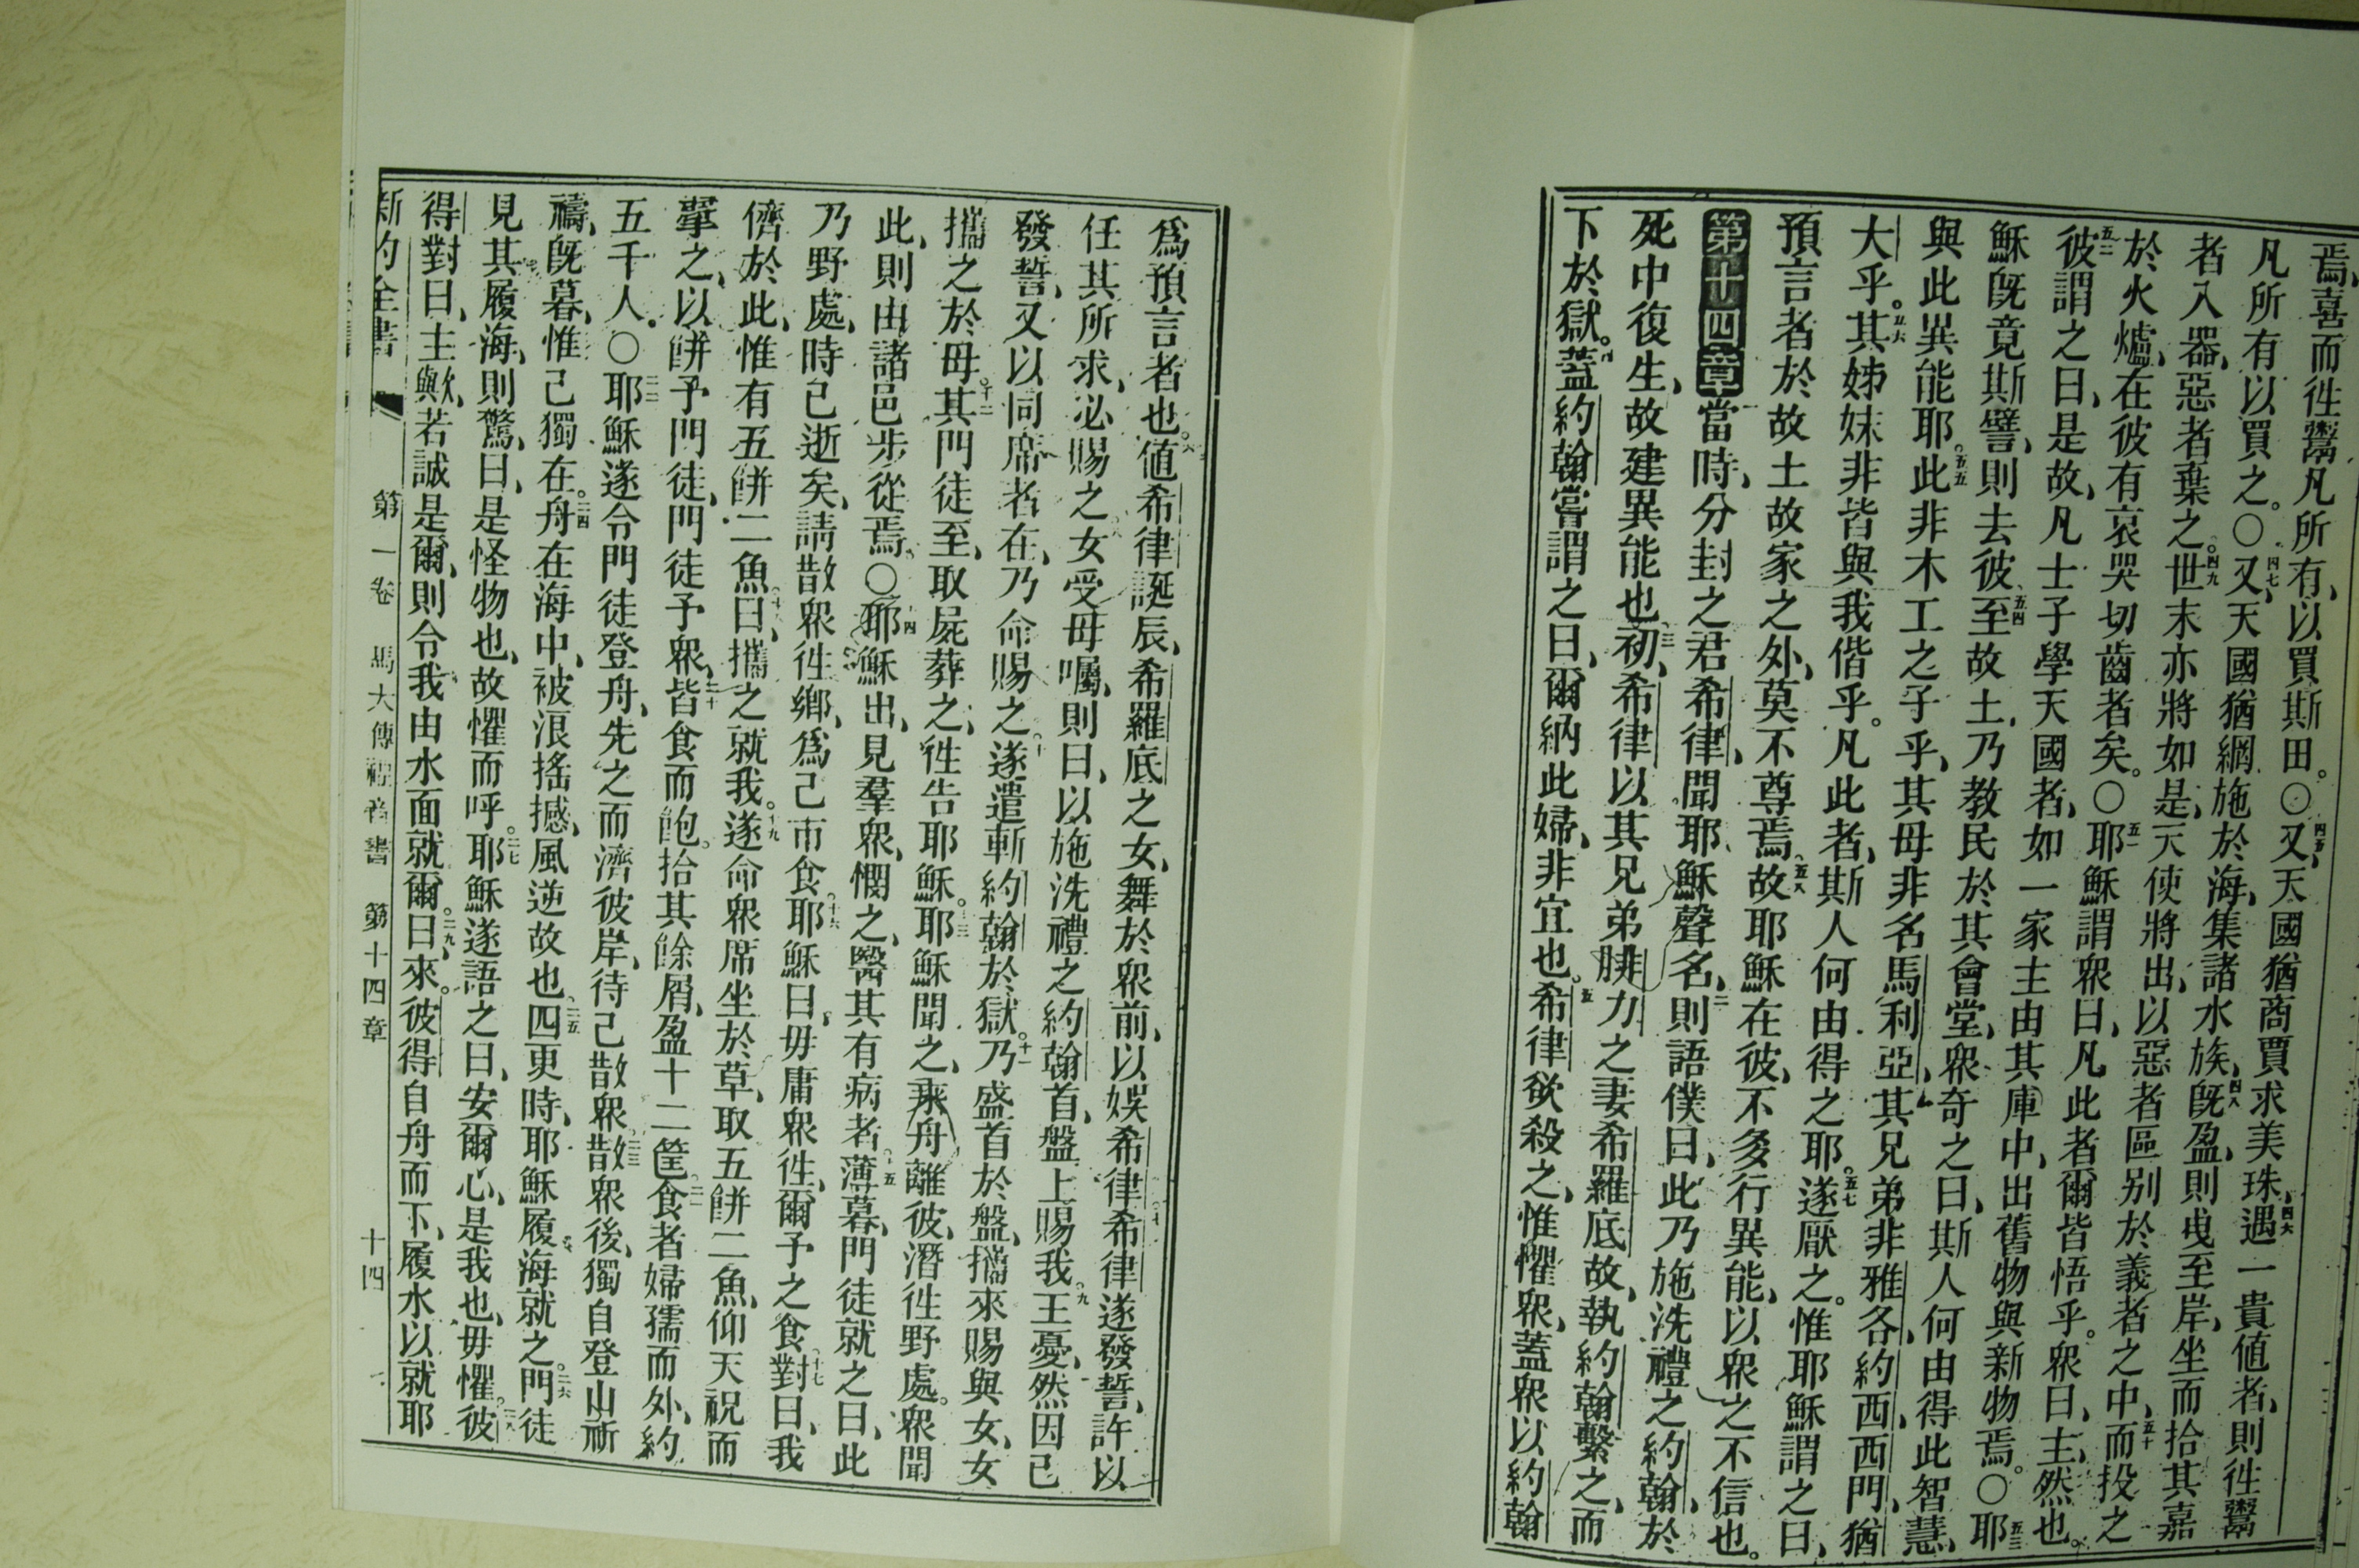 焉、喜而徃鬻凡所有、以買斯田。〇四五又、天國猶商賈求美珠、四六遇一貴値者、則徃鬻
凡所有以買之。〇四七又、天國猶網施於海、集諸水族、四八旣盈、則曳至岸、坐而拾其嘉
者入器、惡者棄之。四九世末亦將如是、天使將出、以惡者區别於義者之中、五十而投之
於火爐、在彼有哀哭切齒者矣。〇五一耶穌謂衆曰、凡此者爾皆悟乎。衆曰、主、然也。
五二彼謂之曰、是故、凡士子學天國者、如一家主由其庫中、出舊物與新物焉。〇五三耶
穌旣竟斯譬、則去彼、五四至故土、乃教民於其會堂、衆奇之、曰、斯人何由得此智慧、
與此異能耶。五五此非木工之子乎、其母非名馬利亞、其兄弟非雅各、約西、西門、猶
大乎。五六其姊妹非皆與我偕乎。凡此者、斯人何由得之耶。五七遂厭之。惟耶穌謂之曰、
預言者於故土故家之外、莫不尊焉。五八故耶穌在彼、不多行異能、以衆之不信也。
第十四章當時、分封之君希律、聞耶穌聲名、二則語僕曰、此乃施洗禮之約翰、於
死中復生、故建異能也。三初、希律以其兄弟腓力之妻希羅底故、執約翰繫之、而
下於獄。四蓋約翰嘗謂之曰、爾納此婦、非宜也。五希律欲殺之、惟懼衆、蓋衆以約翰
爲預言者也。六値希律誕辰、希羅底之女、舞於衆前、以娛希律、七希律遂發誓、許以
任其所求、必賜之、八女受母囑、則曰、以施洗禮之約翰首、盤上賜我。九王憂、然因己
發誓、又以同席者在、乃命賜之。十遂遣斬約翰於獄。十一乃盛首於盤、攜來賜與女、女
攜之於母。十二其門徒至、取屍葬之、徃告耶穌。十三耶穌聞之、乘舟離彼、潛徃野處。衆聞
此、則由諸邑步從焉。〇十四耶穌出、見羣衆、憫之、醫其有病者、十五薄暮、門徒就之曰、此
乃野處、時已逝矣、請散衆徃鄉、爲己市食。十六耶穌曰、毋庸衆徃、爾予之食、十七對曰、我
儕於此、惟有五餅二魚。十八曰、攜之就我。十九遂命衆席坐於草、取五餅二魚、仰天祝而
擘之、以餅予門徒、門徒予衆、二十皆食而飽。拾其餘屑、盈十二筐。二一食者婦孺而外、約
五千人。〇二二耶穌遂令門徒登舟、先之而濟彼岸、待己散衆、二三散衆後、獨自登山祈
禱、旣暮、惟己獨在。二四舟在海中、被浪搖撼、風逆故也。二五四更時、耶穌履海就之。二六門徒
見其履海、則驚、曰、是怪物也、故懼而呼。二七耶穌遂語之曰、安爾心、是我也、毋懼。二八彼
得對曰、主歟、若誠是爾、則令我由水面就爾。二九曰、來。彼得自舟而下、履水以就耶
新約全書 第一卷 馬大傳福音書 第十四章 十四